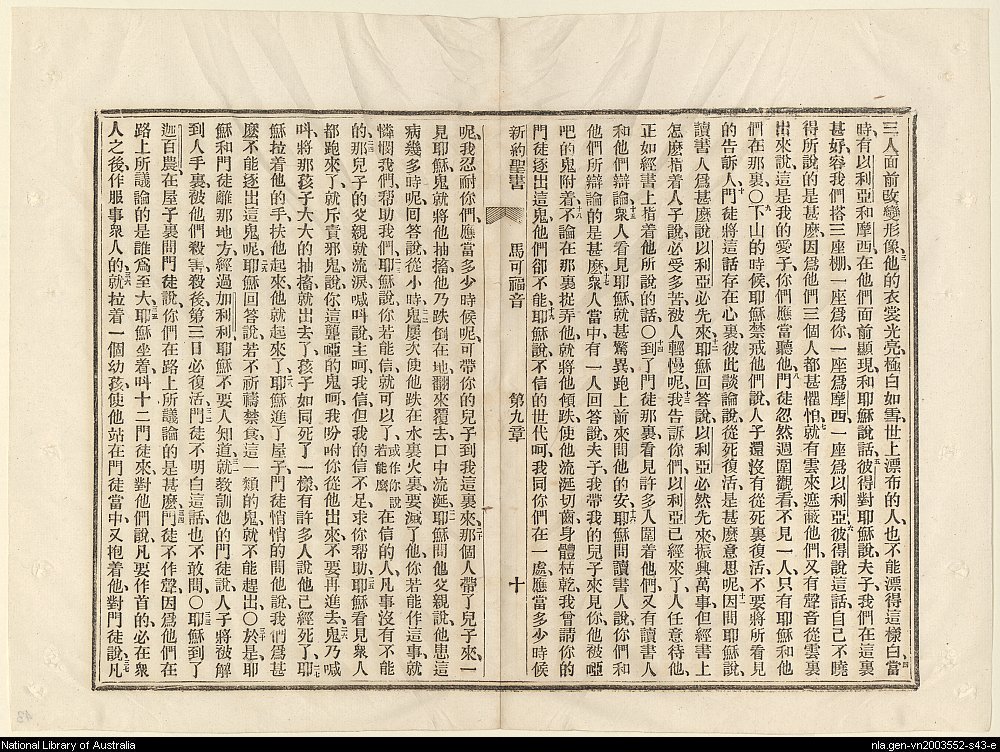 三人面前改變形像、他的衣裳光亮、極白如雪、世上漂布的人、也不能漂得這樣白、當
時有以利亞和摩西、在他們面前顯現、和耶穌說話、彼得對耶穌說、夫子、我們在這裏
甚好、容我們搭三座棚、一座爲你、一座爲摩西、一座爲以利亞、彼得說這話、自己不曉
得所說的是甚麼、因爲他們三個人都甚懼怕、就有雲來遮蔽他們、又有聲音從雲裏
出來說、這是我的愛子、你們應當聽他、門徒忽然週圍觀看、不見一人、只有耶穌和他
們在那裏○下山的時候、耶穌禁戒他們說、人子還沒有從死裏復活、不要將所看見
的告訴人、門徒將這話存在心裏、彼此談論說、從死復活是甚麼意思呢、因問耶穌說、
讀書人爲甚麼說以利亞必先來、耶穌回答說、以利亞必然先來、振興萬事、但經書上
怎麼指着人子說、必受多苦、被人輕慢呢、我告訴你們、以利亞已經來了、人任意待他、
正如經書上指着他所說的話○到了門徒那裏、看見許多人圍着他們、又有讀書人
和他們辯論、衆人看見耶穌、就甚驚異、跑上前來問他的安、耶穌問讀書人說、你們和
他們所辯論的是甚麼、衆人當中有一人回答說、夫子、我帶我的兒子來見你、他被啞
吧的鬼附着、不論在那裏、捉弄他、就將他傾跌、使他流涎切齒、身體枯乾、我曾請你的
門徒逐出這鬼、他們卻不能、耶穌說、不信的世代呵、我同你們在一處、應當多少時候
新約聖書 馬可福音 第九章 十
呢、我忍耐你們、應當多少時候呢、可帶你的兒子到我這裏來、那個人帶了兒子來、一
見耶穌、鬼就將他抽搐、他乃跌倒在地、翻來覆去、口中流涎、耶穌問他父親說、他患這
病幾多時呢、回答說、從小時、鬼屢次使他跌在水裏火裏、要滅了他、你若能作這事、就
憐憫我們、幫助我們、耶穌說、你若能信、就可以了、或作你說若能麼在信的人、凡事沒有不能
的、那兒子的父親就流淚、喊叫說、主呵、我信、但我的信不足、求你幫助、耶穌看見衆人
都跑來了、就斥責邪鬼說、你這聾啞的鬼呵、我吩咐你從他出來、不要再進去、鬼乃喊
叫、將那孩子大大的抽搐、就出去了、孩子如同死了一樣、有許多人說、他已經死了、耶
穌拉着他的手、扶他起來、他就起來了、耶穌進了屋子、門徒悄悄的問他說、我們爲甚
麼不能逐出這鬼呢、耶穌回答說、若不祈禱禁食、這一類的鬼、就不能趕出○於是耶
穌和門徒離那地方、經過加利利、耶穌不要人知道、就教訓他的門徒說、人子將被解
到人手裏、被他們殺害、殺後第三日必復活、門徒不明白這話、也不敢問○耶穌到了
迦百農、在屋子裏問門徒說、你們在路上所議論的是甚麼、門徒不作聲、因爲他們在
路上所議論的是誰爲至大、耶穌坐着、叫十二門徒來、對他們說、凡要作首的、必在衆
人之後、作服事衆人的、就拉着一個幼孩、使他站在門徒當中、又抱着他、對門徒說、凡
National Library of Australia
nla.gen-vn2003552-s43-e